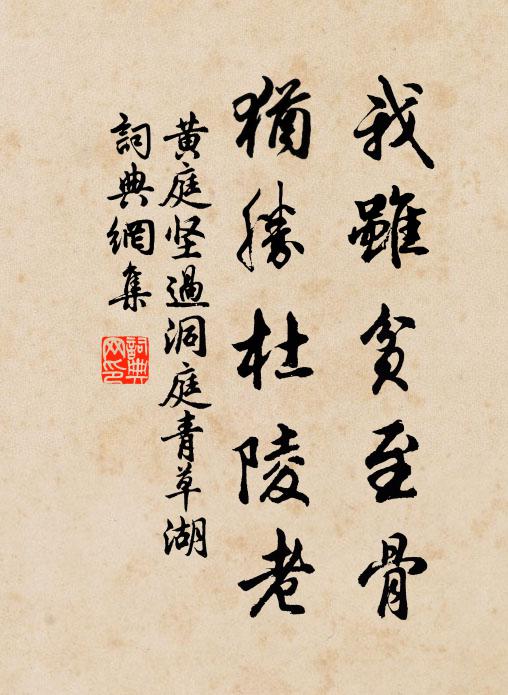 我雖貧至骨
猶勝杜陵老
黃庭坚過洞庭青草湖
詞典網集
詞典网印